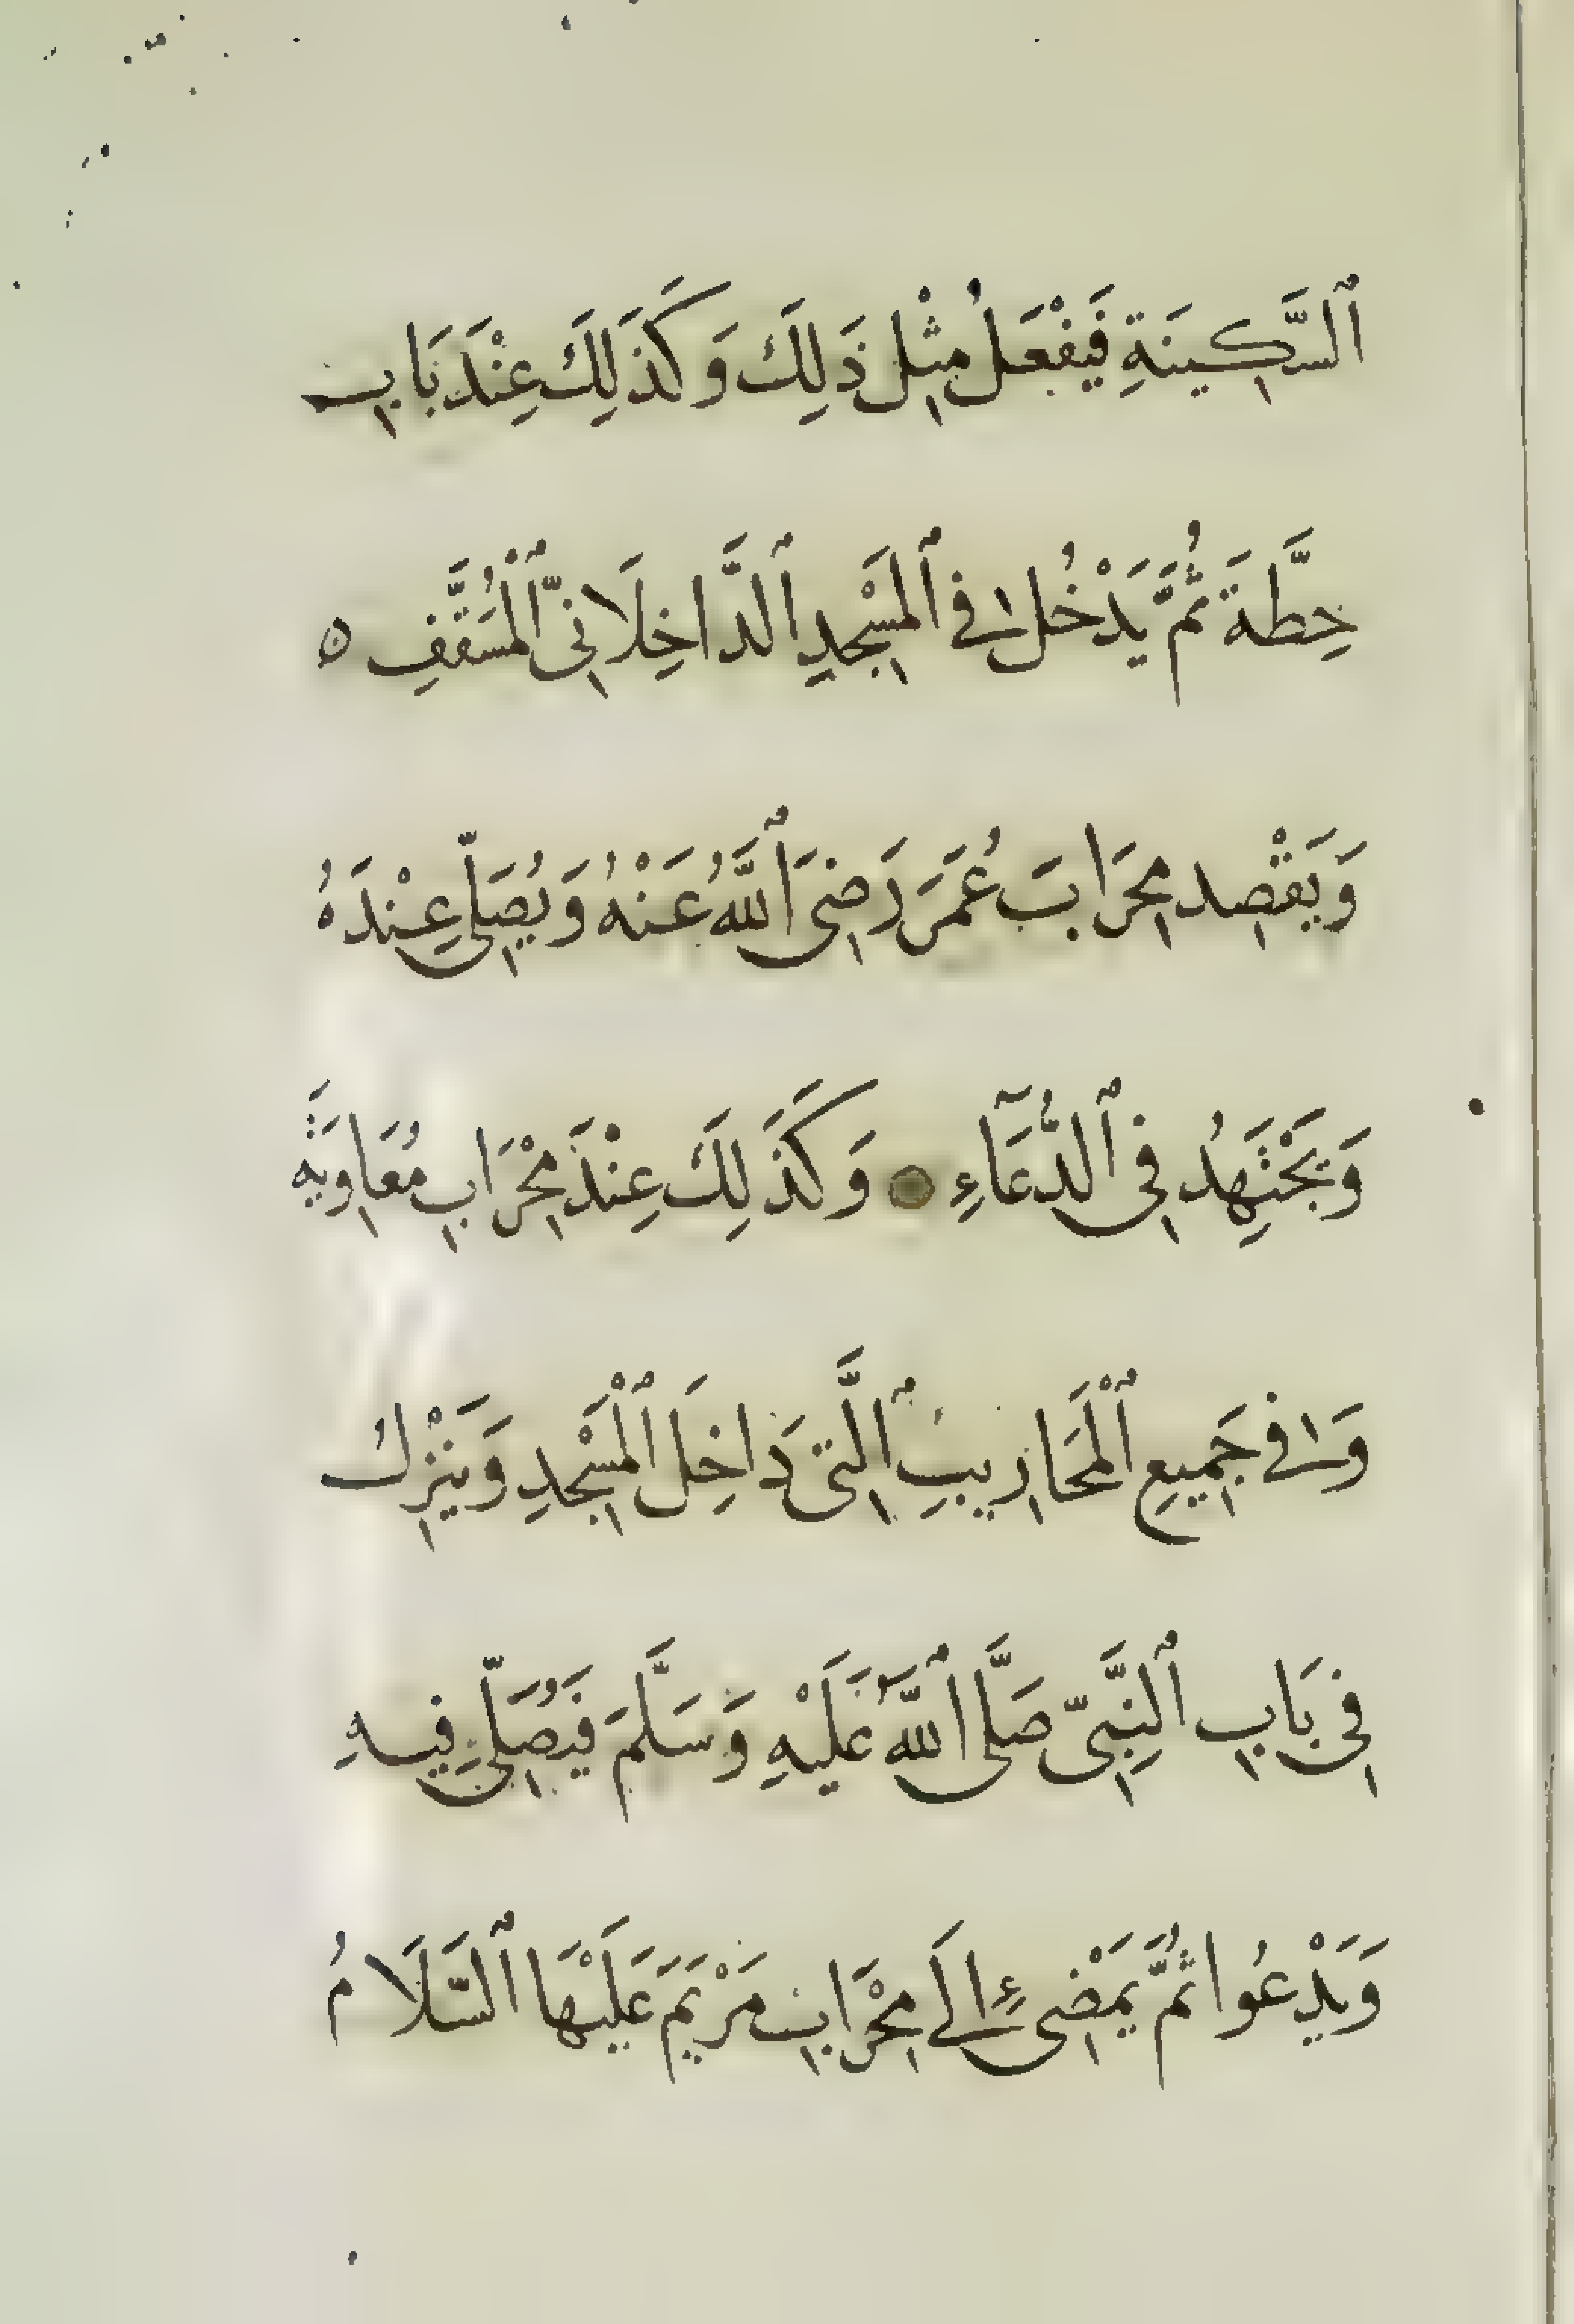 ٱلسَّكِينَةِ فَيَفْعَلُ مِثْلَ ذَلِكَ وَكَذَلِكَ عِنْدَ بَابِ
حِطَّةَ ثُمَّ يَدْخُل اِلى فِي ٱلمَسْجِدِ ٱلدَّاخِلَانِيّ ٱلْمُسَقَّفِ ٥
وَيَقْصِد مِحرَابَ عُمَرَ رَضِىَ ٱللَّهُ عَنْهُ وَيُصَلِّي عِنْدَهُ
وَيَجْتَهِدُ فِى ٱلدُّعَآءِ وَكَذَلِكَ عِنْدَ مِحْرَابِ مُعَاوِيَةَ
وَفِي جَمِيعِ ٱلْمَحَارِيبِ ٱلَّتِى دَاخِلَ ٱلْمَسْجِدِ وَيَنْزِلُ
فِى بَابِ ٱلنَّبِىّ صَلَّى ٱللَّهُ عَلَيْهِ وَسَلَّمَ فَيُصَلِّي فِيهِ
وَيَدْعُوا ثُمَّ يَمْضِى إِلَى مِحْرَابِ مَرْيَمَ عَلَيْهَا ٱلسَّلَامُ